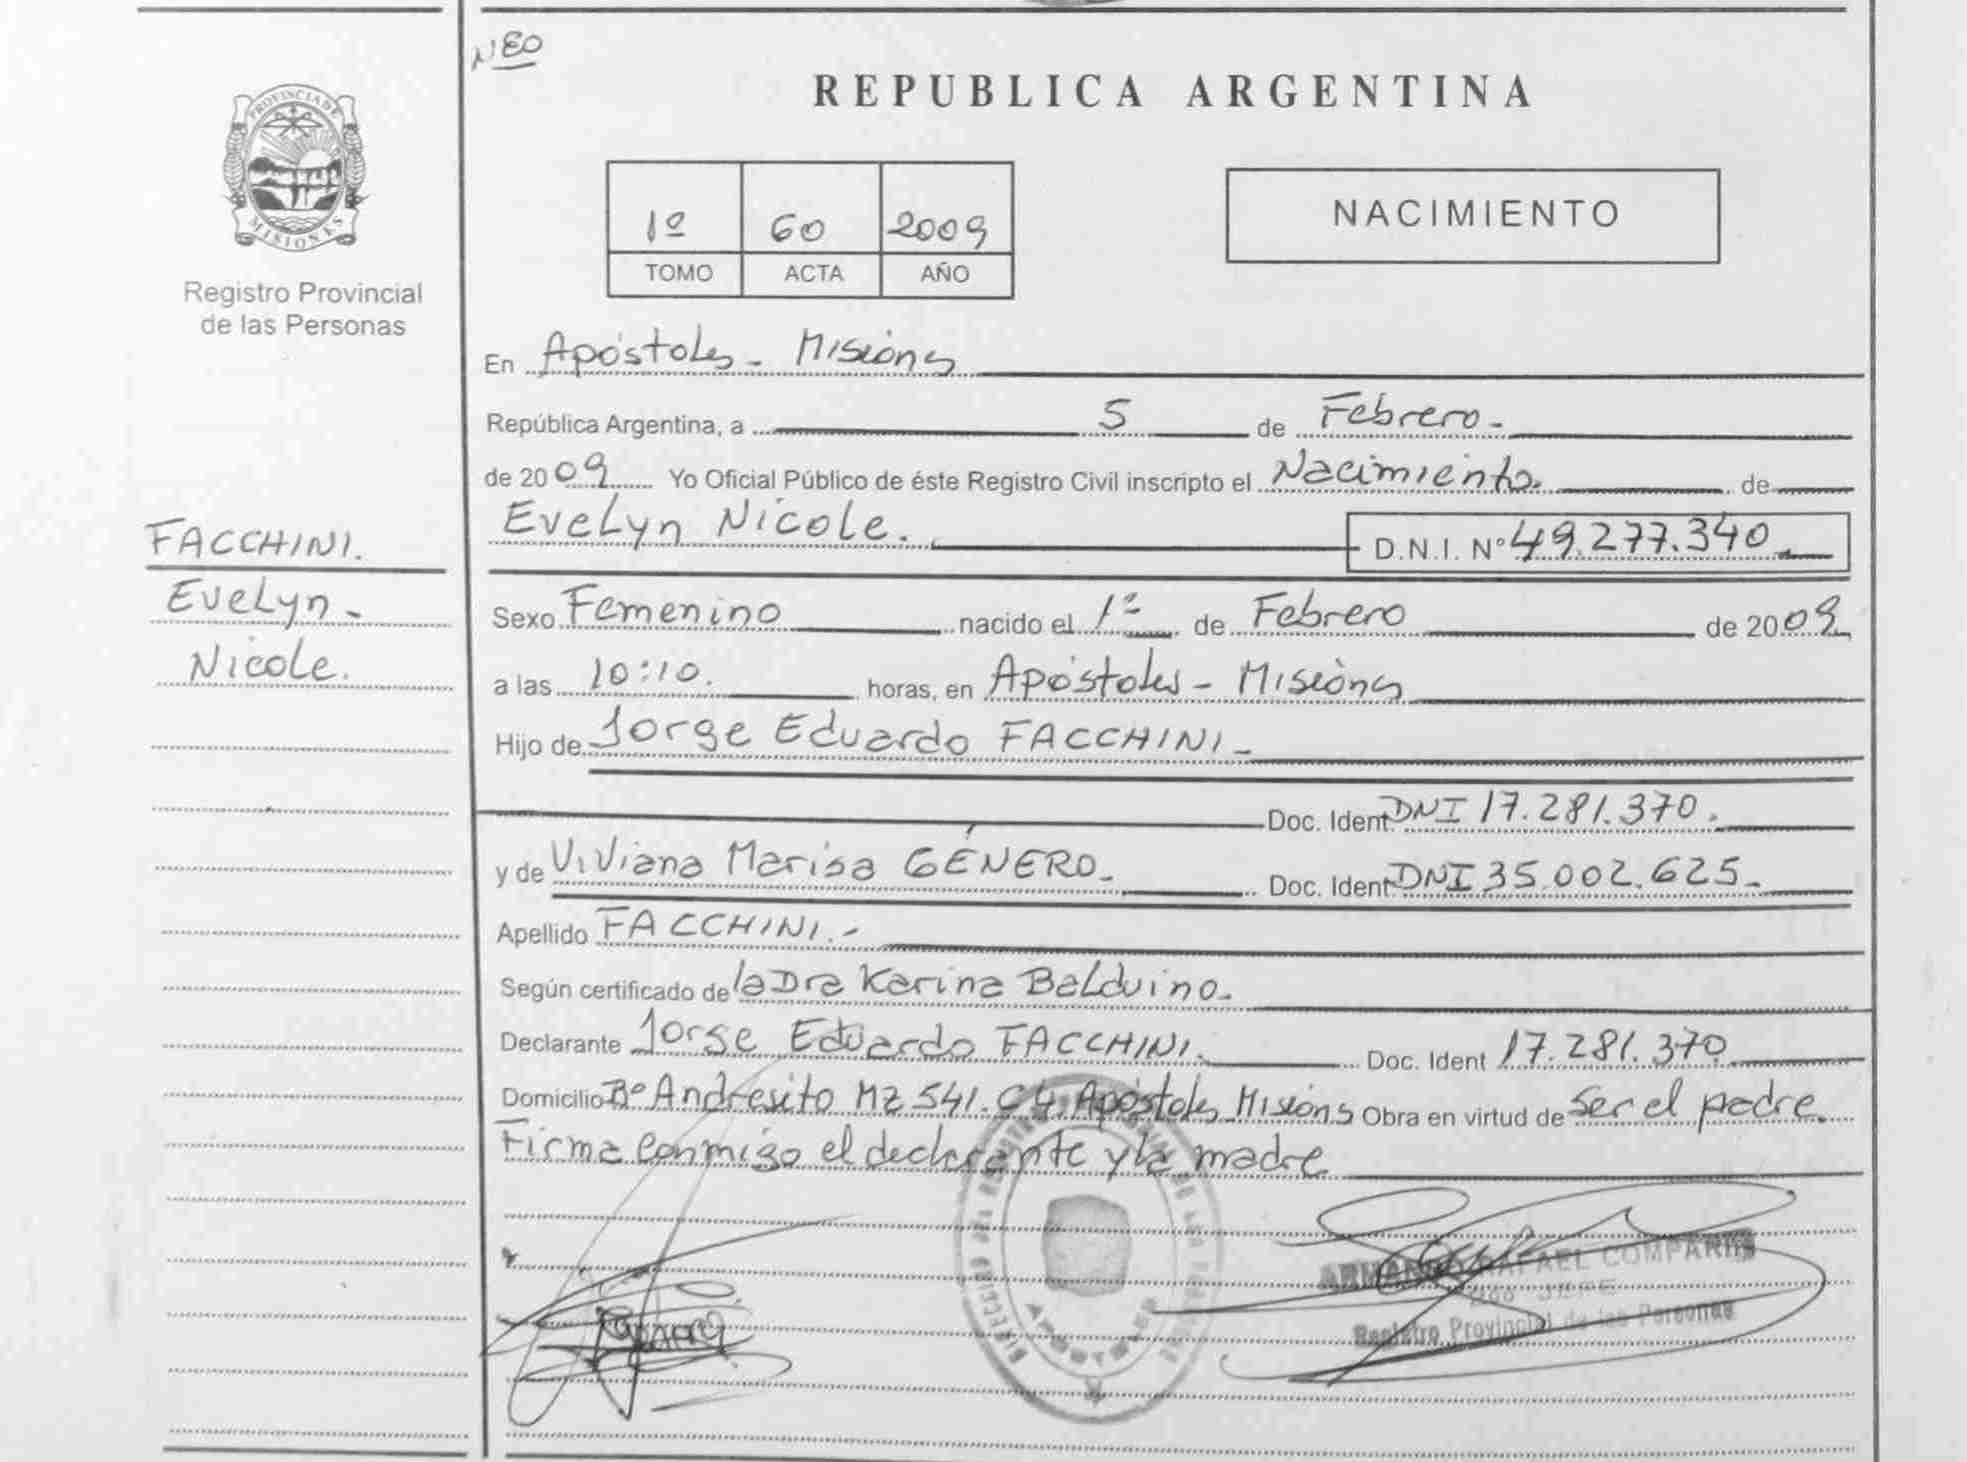 NEO
REPUBLICA ARGENTINA
PROVINCIA DE
MISIONES
Registro Provincial
de las Personas
1º 60 2009
TOMO ACTA AÑO
NACIMIENTO
En Apóstoles - Misiones
República Argentina, a 5 de Febrero.
de 2009 Yo Oficial Público de éste Registro Civil inscripto el Nacimiento. de
Evelyn Nicole. D.N.I. Nº 49.277.340
FACCHINI.
Evelyn
Nicole.
Sexo Femenino nacido el 1º de Febrero de 2009
a las 10:10. horas, en Apóstoles - Misiones
Hijo de Jorge Eduardo FACCHINI
Doc. Ident DNI 17.281.370.
y de Viviana Marisa GÉNERO. Doc. Ident DNI 35.002.625.
Apellido FACCHINI.-
Según certificado de la Dra Karina Balduino.
Declarante Jorge Eduardo FACCHINI. Doc. Ident 17.281.370
Domicilio Bº Andresito Mz 541. C4. Apóstoles Misiones Obra en virtud de ser el padre.
Firma conmigo el declarante y la madre
RAFAEL
JEFE
Registro Provincial de las Personas